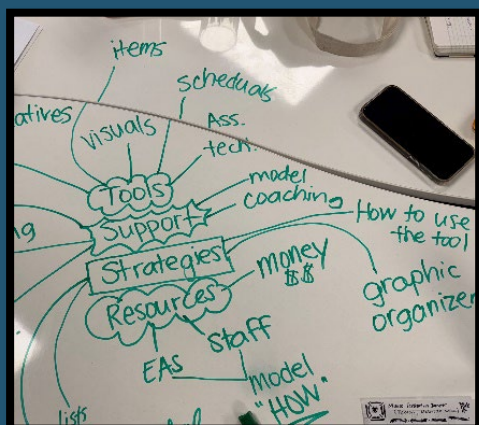 items
scheduals
atives
visuals
Ass.
tech.
Tools
model
coaching
Support
How to use
the tool
Strategies
money
$$
graphic
organizer
Resources
Staff
EAS
model
"HOW"
lists